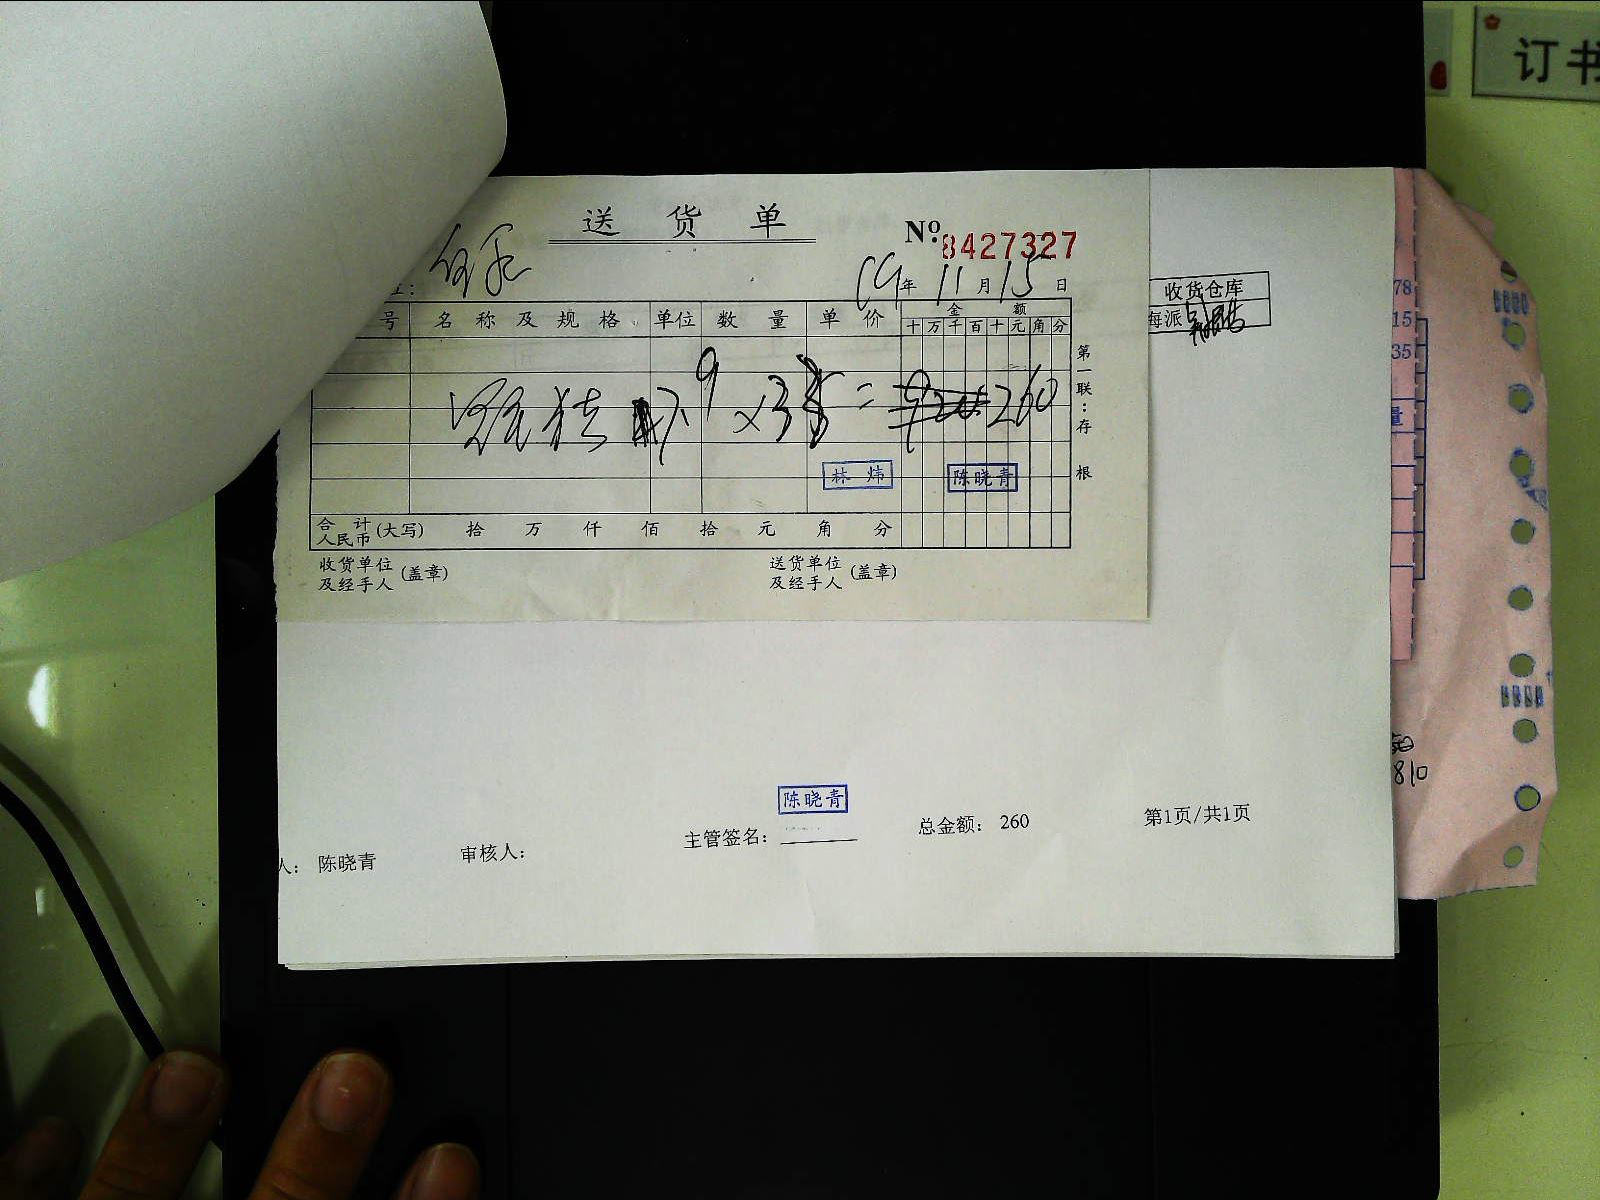 订书
送货单
No. 8427327
19年11月15日
收货仓库
海派
号 名称及规格 单位 数量 单价 金额
十万千百十元角分
78
15
35
量
第一联:存根
260
林炜
陈晓青
合计人民币(大写) 拾 万 仟 佰 拾 元 角 分
收货单位及经手人(盖章)
送货单位及经手人(盖章)
810
陈晓青
人: 陈晓青
审核人:
主管签名:
总金额: 260
第1页/共1页